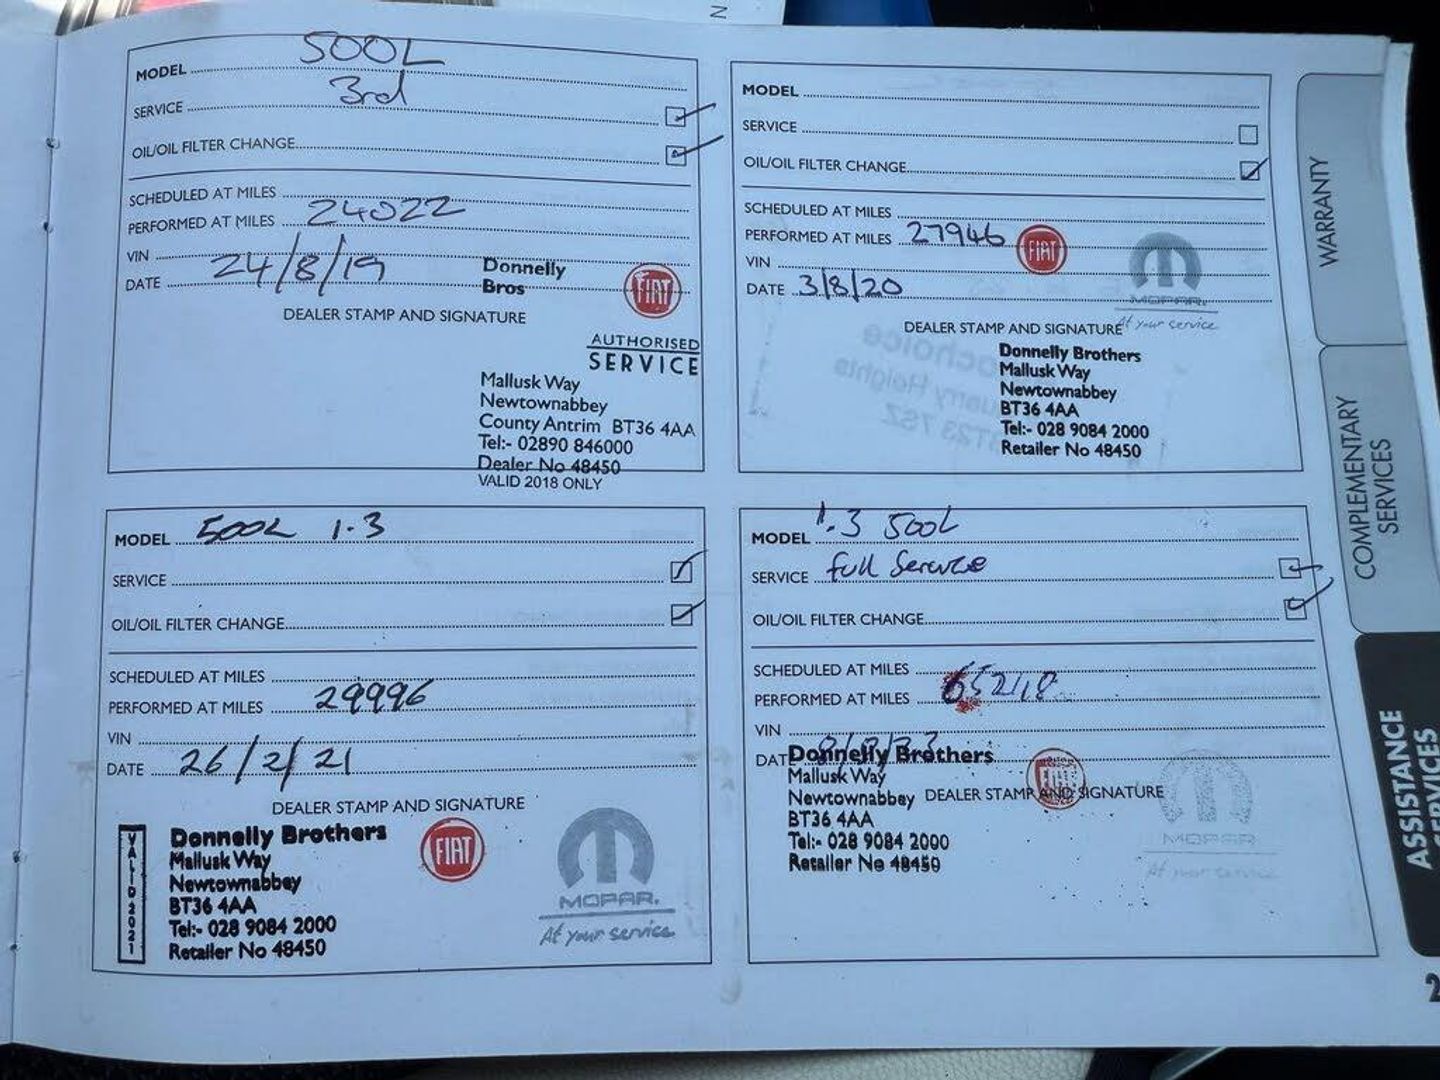 MODEL 500L
SERVICE 3rd
OIL/OIL FILTER CHANGE
SCHEDULED AT MILES
PERFORMED AT MILES 24022
VIN
DATE 24/8/19
Donnelly
Bros
FIAT
DEALER STAMP AND SIGNATURE
AUTHORISED
SERVICE
Mallusk Way
Newtownabbey
County Antrim BT36 4AA
Tel:- 02890 846000
Dealer No 48450
VALID 2018 ONLY
MODEL
SERVICE
OIL/OIL FILTER CHANGE
SCHEDULED AT MILES
PERFORMED AT MILES 27946
VIN
DATE 3/8/20
FIAT
MOPAR.
At your service
DEALER STAMP AND SIGNATURE
Donnelly Brothers
Mallusk Way
Newtownabbey
BT36 4AA
Tel:- 028 9084 2000
Retailer No 48450
MODEL 500L 1.3
SERVICE
OIL/OIL FILTER CHANGE
SCHEDULED AT MILES
PERFORMED AT MILES 29996
VIN
DATE 26/2/21
DEALER STAMP AND SIGNATURE
VALID 2021
Donnelly Brothers
Mallusk Way
Newtownabbey
BT36 4AA
Tel:- 028 9084 2000
Retailer No 48450
FIAT
MOPAR.
At your service
MODEL 1.3 500L
SERVICE full Service
OIL/OIL FILTER CHANGE
SCHEDULED AT MILES
PERFORMED AT MILES
VIN
DATE
Donnelly Brothers
Mallusk Way
Newtownabbey
BT36 4AA
Tel:- 028 9084 2000
Retailer No 48450
DEALER STAMP AND SIGNATURE
FIAT
MOPAR
At your service
WARRANTY
COMPLEMENTARY
SERVICES
ASSISTANCE
SERVICES
2